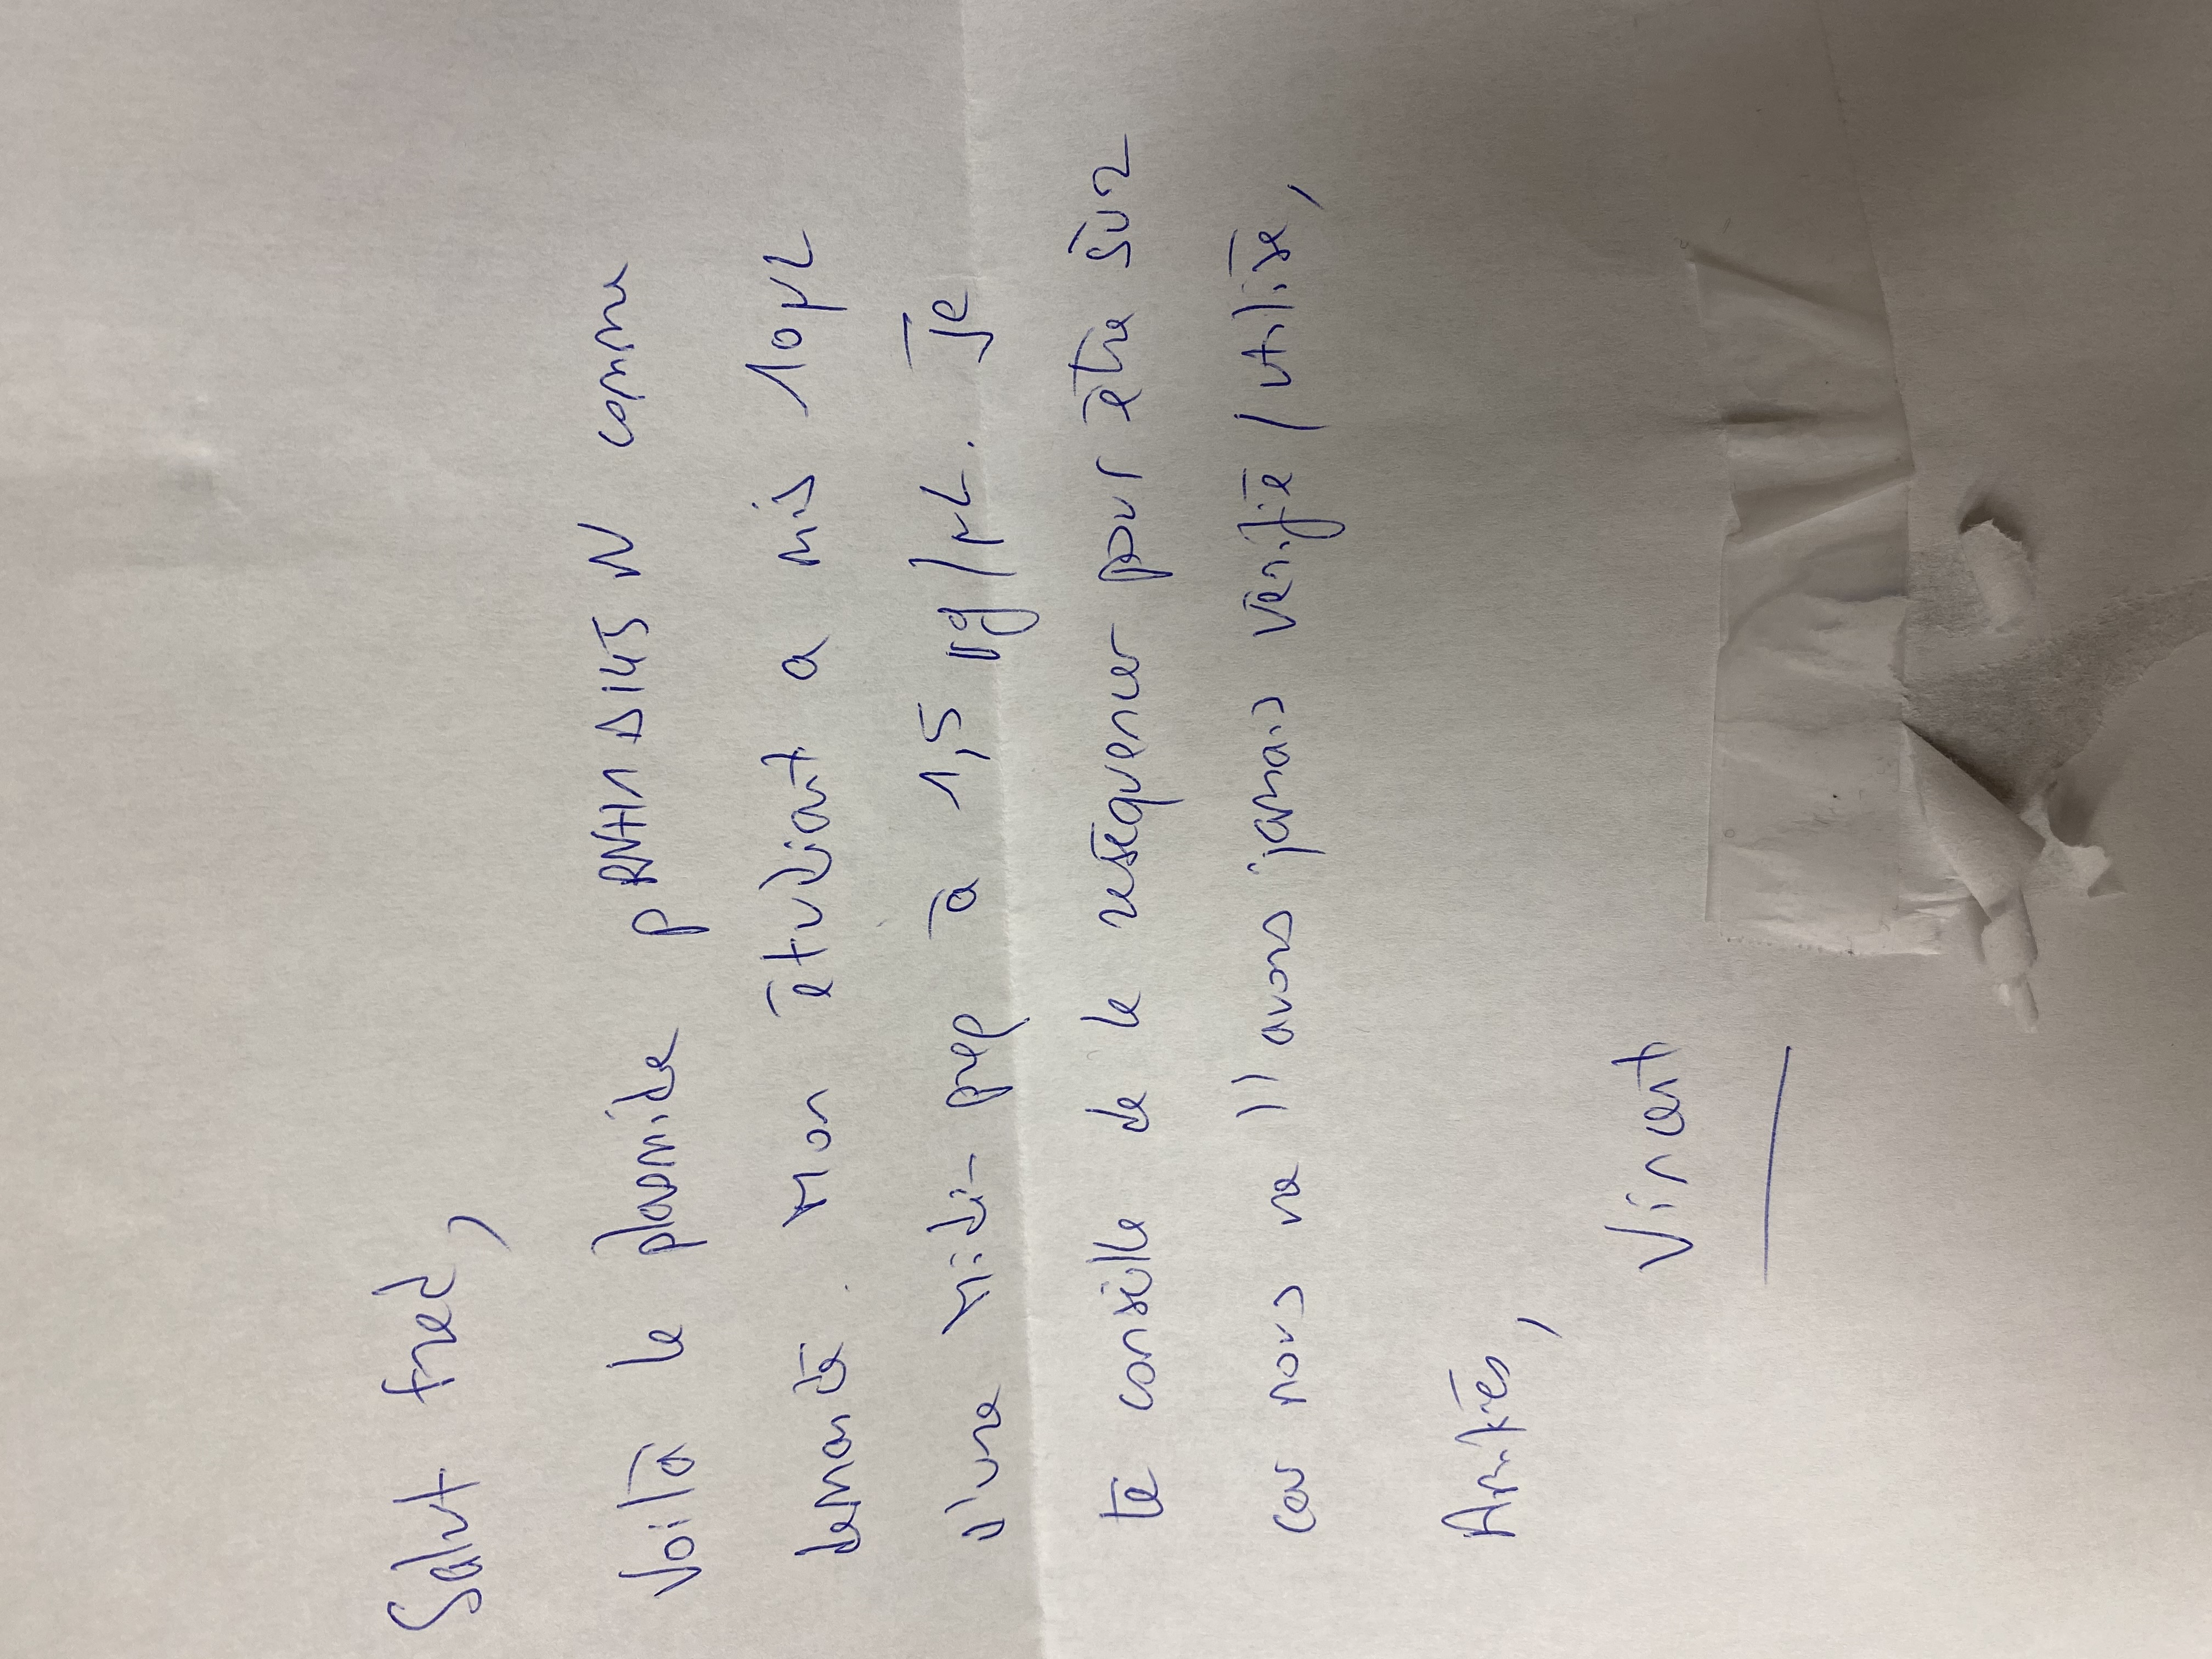 Salut Fred,
Voilà le plasmide pRNH1 D145N comme
demandé. Mon étudiant a mis 10µL
d'une Midi-prep à 1,5 µg/µL. Je
te conseille de le reséquencer pour être sûr
car nous ne l'avons jamais vérifié/utilisé,
Amitiés,
Vincent